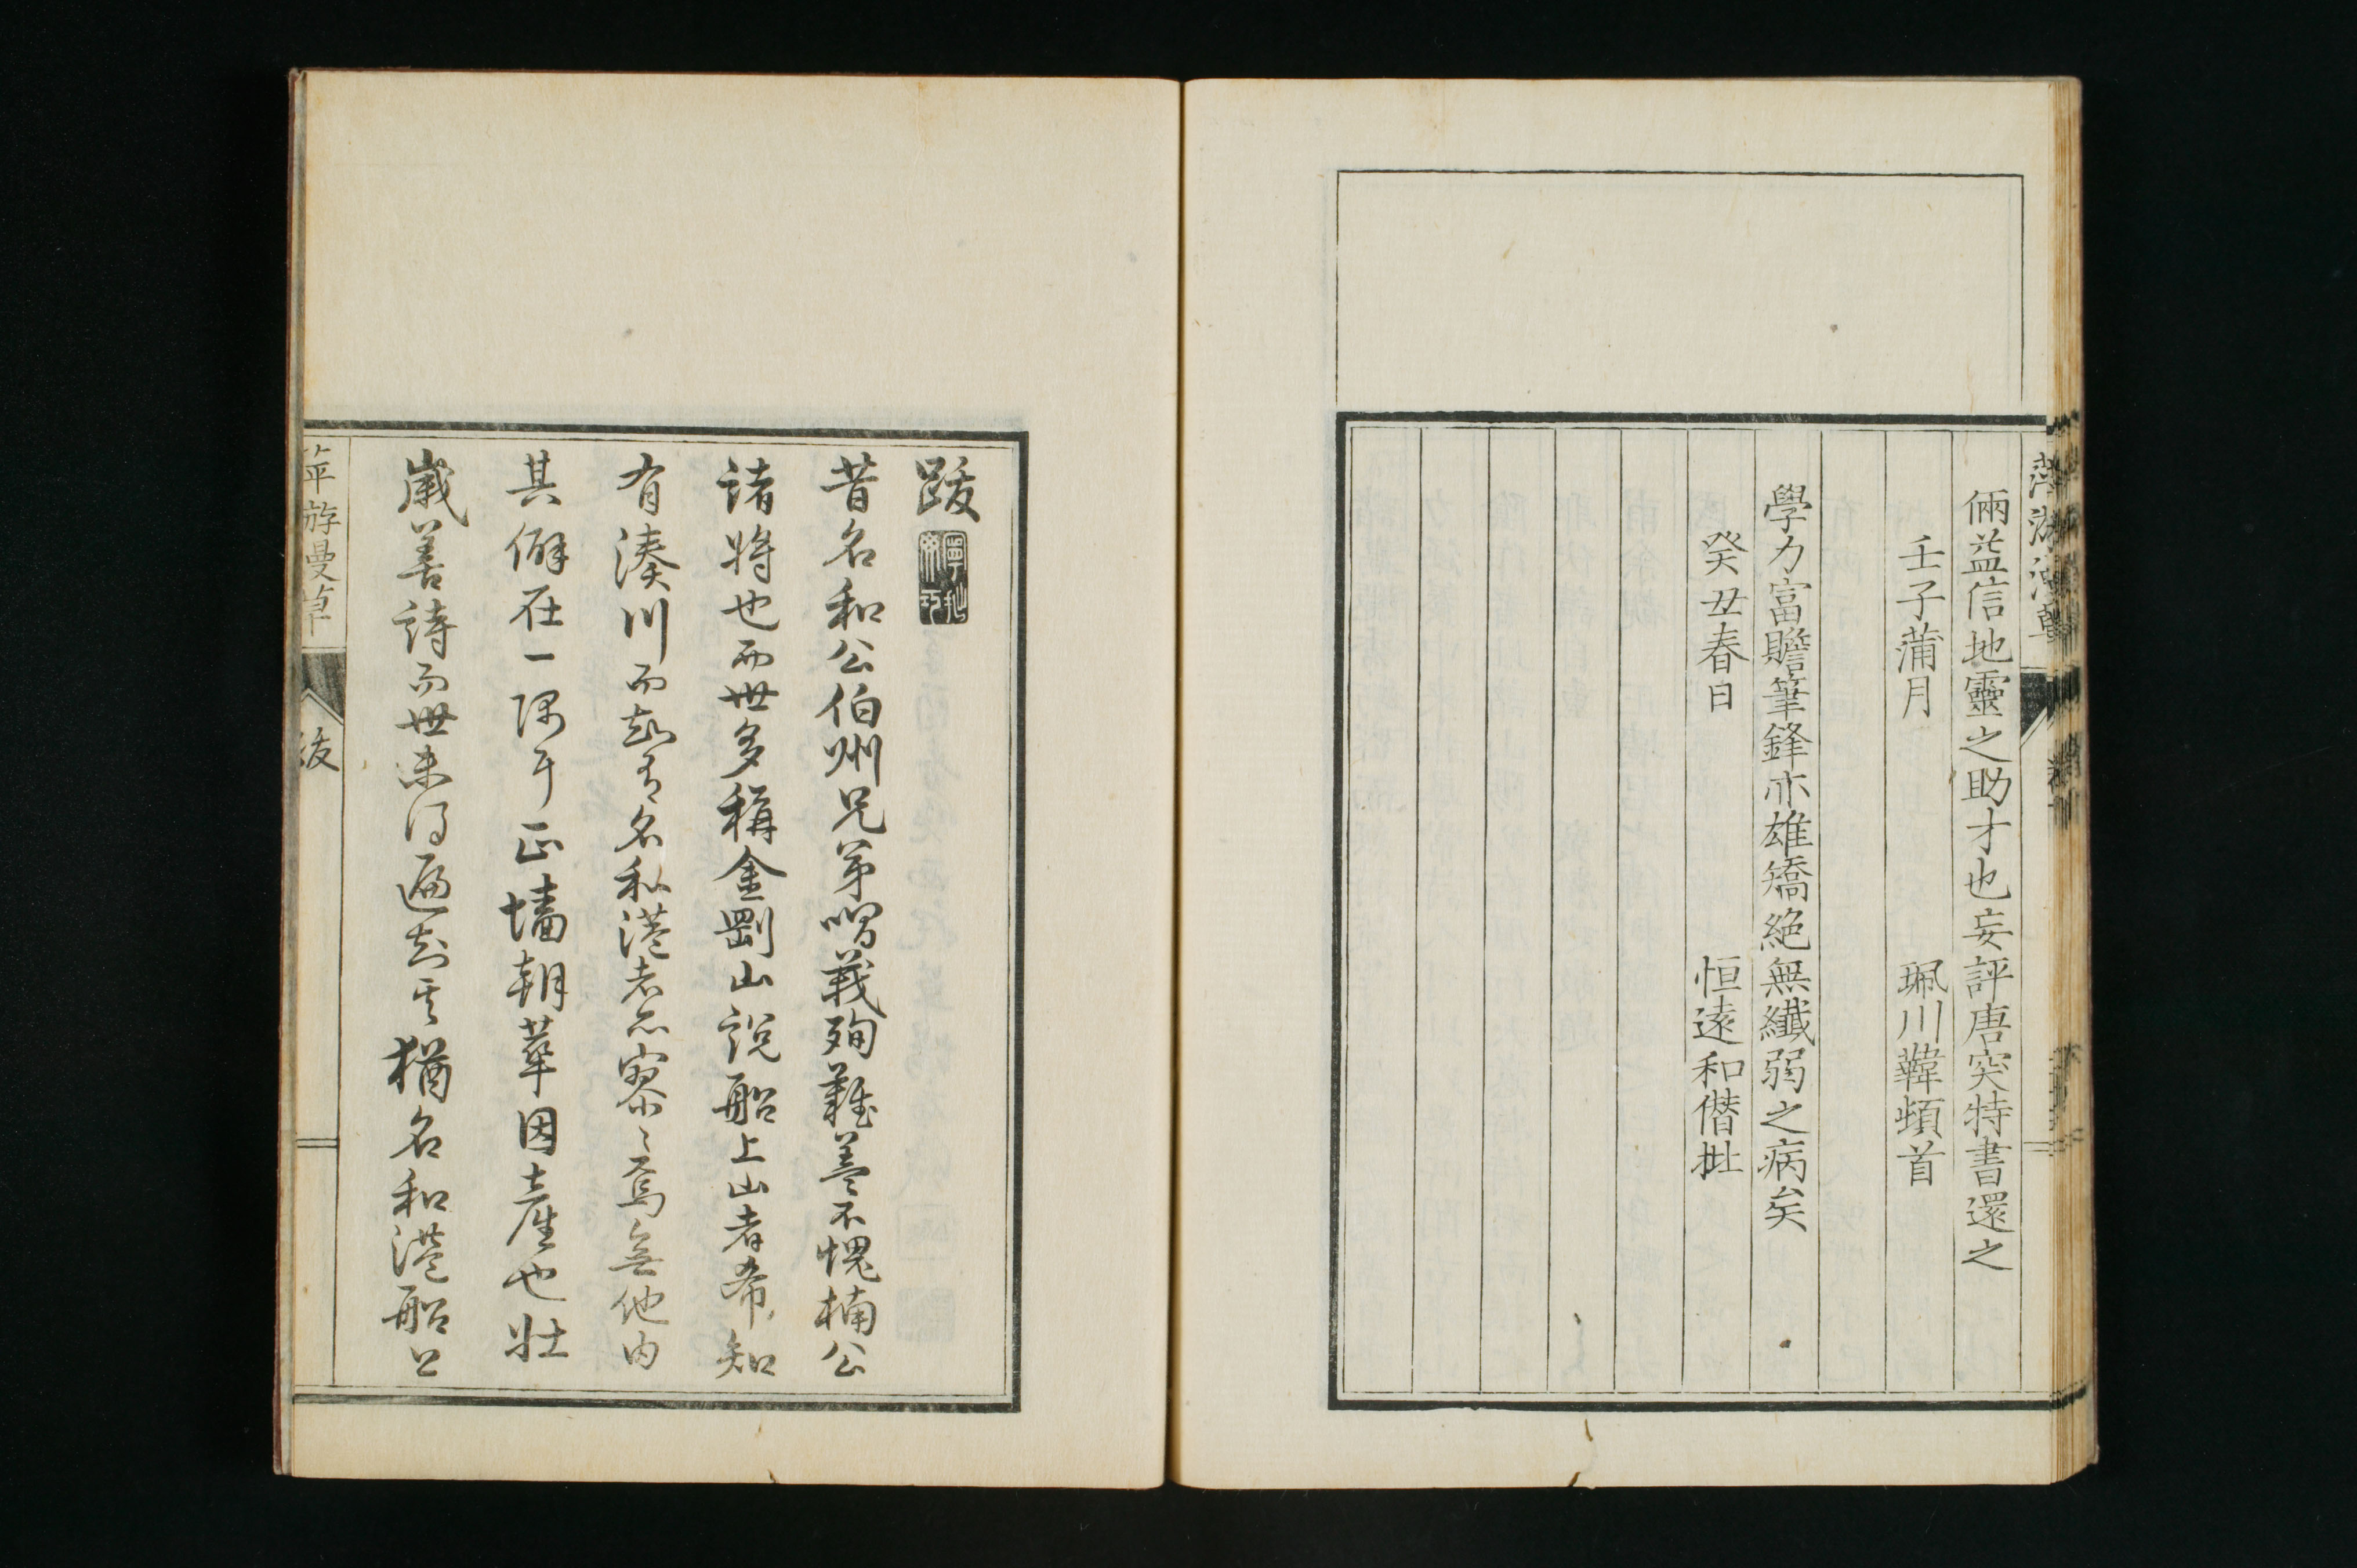 倆益信地靈之助才也妄評唐突特書還之
壬子蒲月 珮川韡頓首
學力富贍筆鋒亦雄矯絕無纖弱之病矣
癸丑春日 恒遠和僭批
跋
昔名和公伯州兄弟唱義殉難蓋不愧楠公
諸將也而世多稱金剛山說船上山者希知
有湊川而知有名和港者亦寥々焉無他由
其僻在一隅耳正墻朝華因產也壯
歲善詩而世未得遍知其猶名和港船上
萍游曼草
跋